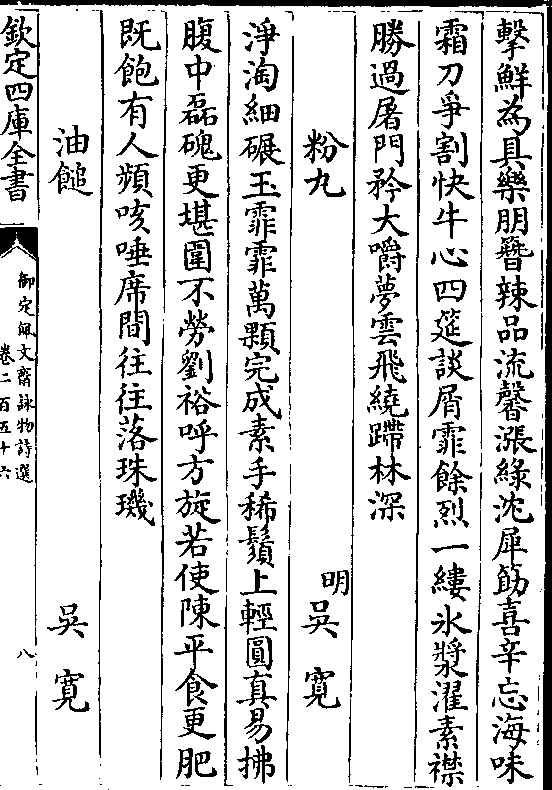 擊鮮為具樂朋簪辣品流馨漲綠沈犀筯喜辛忘海味
霜刀爭割快牛心四筵談屑霏餘烈一縷氷漿濯素襟
勝過屠門矜大嚼夢雲飛繞蹛林深
粉丸 明 吳寛
淨淘細碾玉霏霏萬顆完成素手稀鬚上輕圓真易拂
腹中磊磈更堪圍不勞劉裕呼方旋若使陳平食更肥
既飽有人頻咳唾席間往往落珠璣
油䭔 吳寛
欽定四庫全書
御定佩文齋詠物詩選
卷二百五十六
八